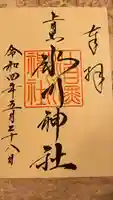 奉拝
氷川神社
令和四年五月二十八日